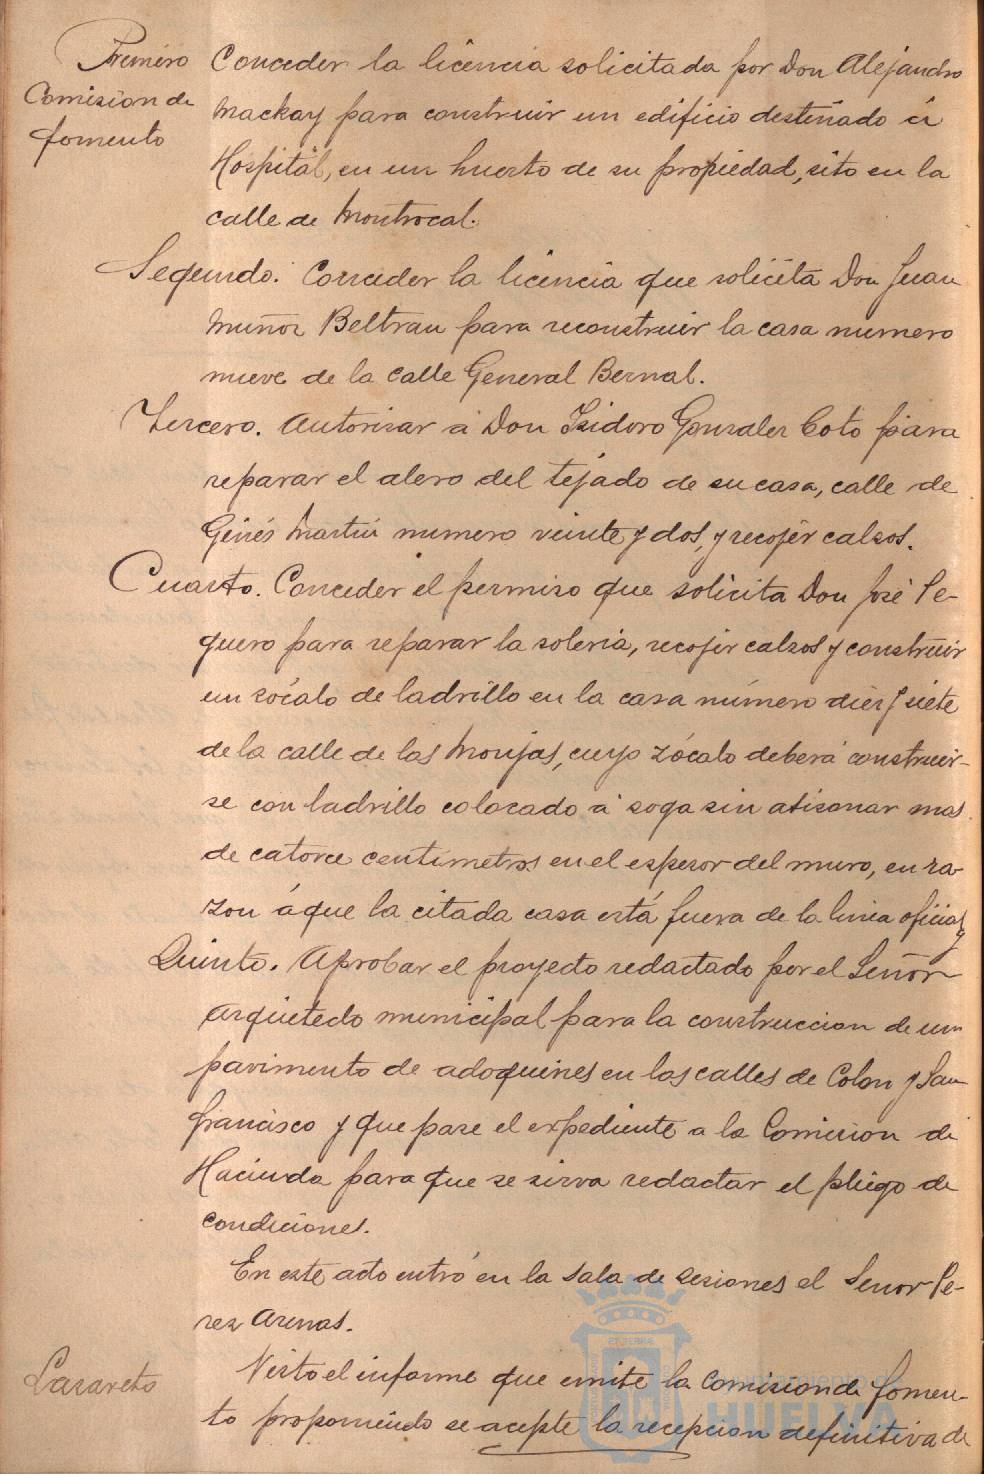 Primero Conceder la licencia solicitada por Don Alejandro
Comision de Mackay para construir un edificio destinado á
fomento Hospital, en un huerto de su propiedad, sito en la
calle de Montrocal.
Segundo. Conceder la licencia que solicita Don Juan
Muñoz Beltran para reconstruir la casa numero
nueve de la calle General Bernal.
Tercero. Autorizar á Don Isidoro Gonzalez Coto para
reparar el alero del tejado de su casa, calle de
Ginés Martin numero veinte y dos, y recojer calsos.
Cuarto. Conceder el permiso que solicita Don José Pe-
quero para reparar la soleria, recojer calsos y construir
un zócalo de ladrillo en la casa número diez y siete
de la calle de las Monjas, cuyo zócalo deberá construir-
se con ladrillo colocado á soga sin atisonar mas
de catorce centimetros en el espesor del muro, en ra-
zon á que la citada casa está fuera de la linea oficial y
Quinto. Aprobar el proyecto redactado por el Señor
Arquitecto municipal para la construccion de un
pavimento de adoquines en las calles de Colon y San
Francisco y que pase el expediente a la Comision de
Hacienda para que se sirva redactar el pliego de
condiciones.
En este acto entró en la Sala de Sesiones el Señor Pe-
rez Arenas.
Lazareto Visto el informe que emite la Comision de fomen-
to proponiendo se acepte la recepcion definitiva de
Ayuntamiento de
HUELVA